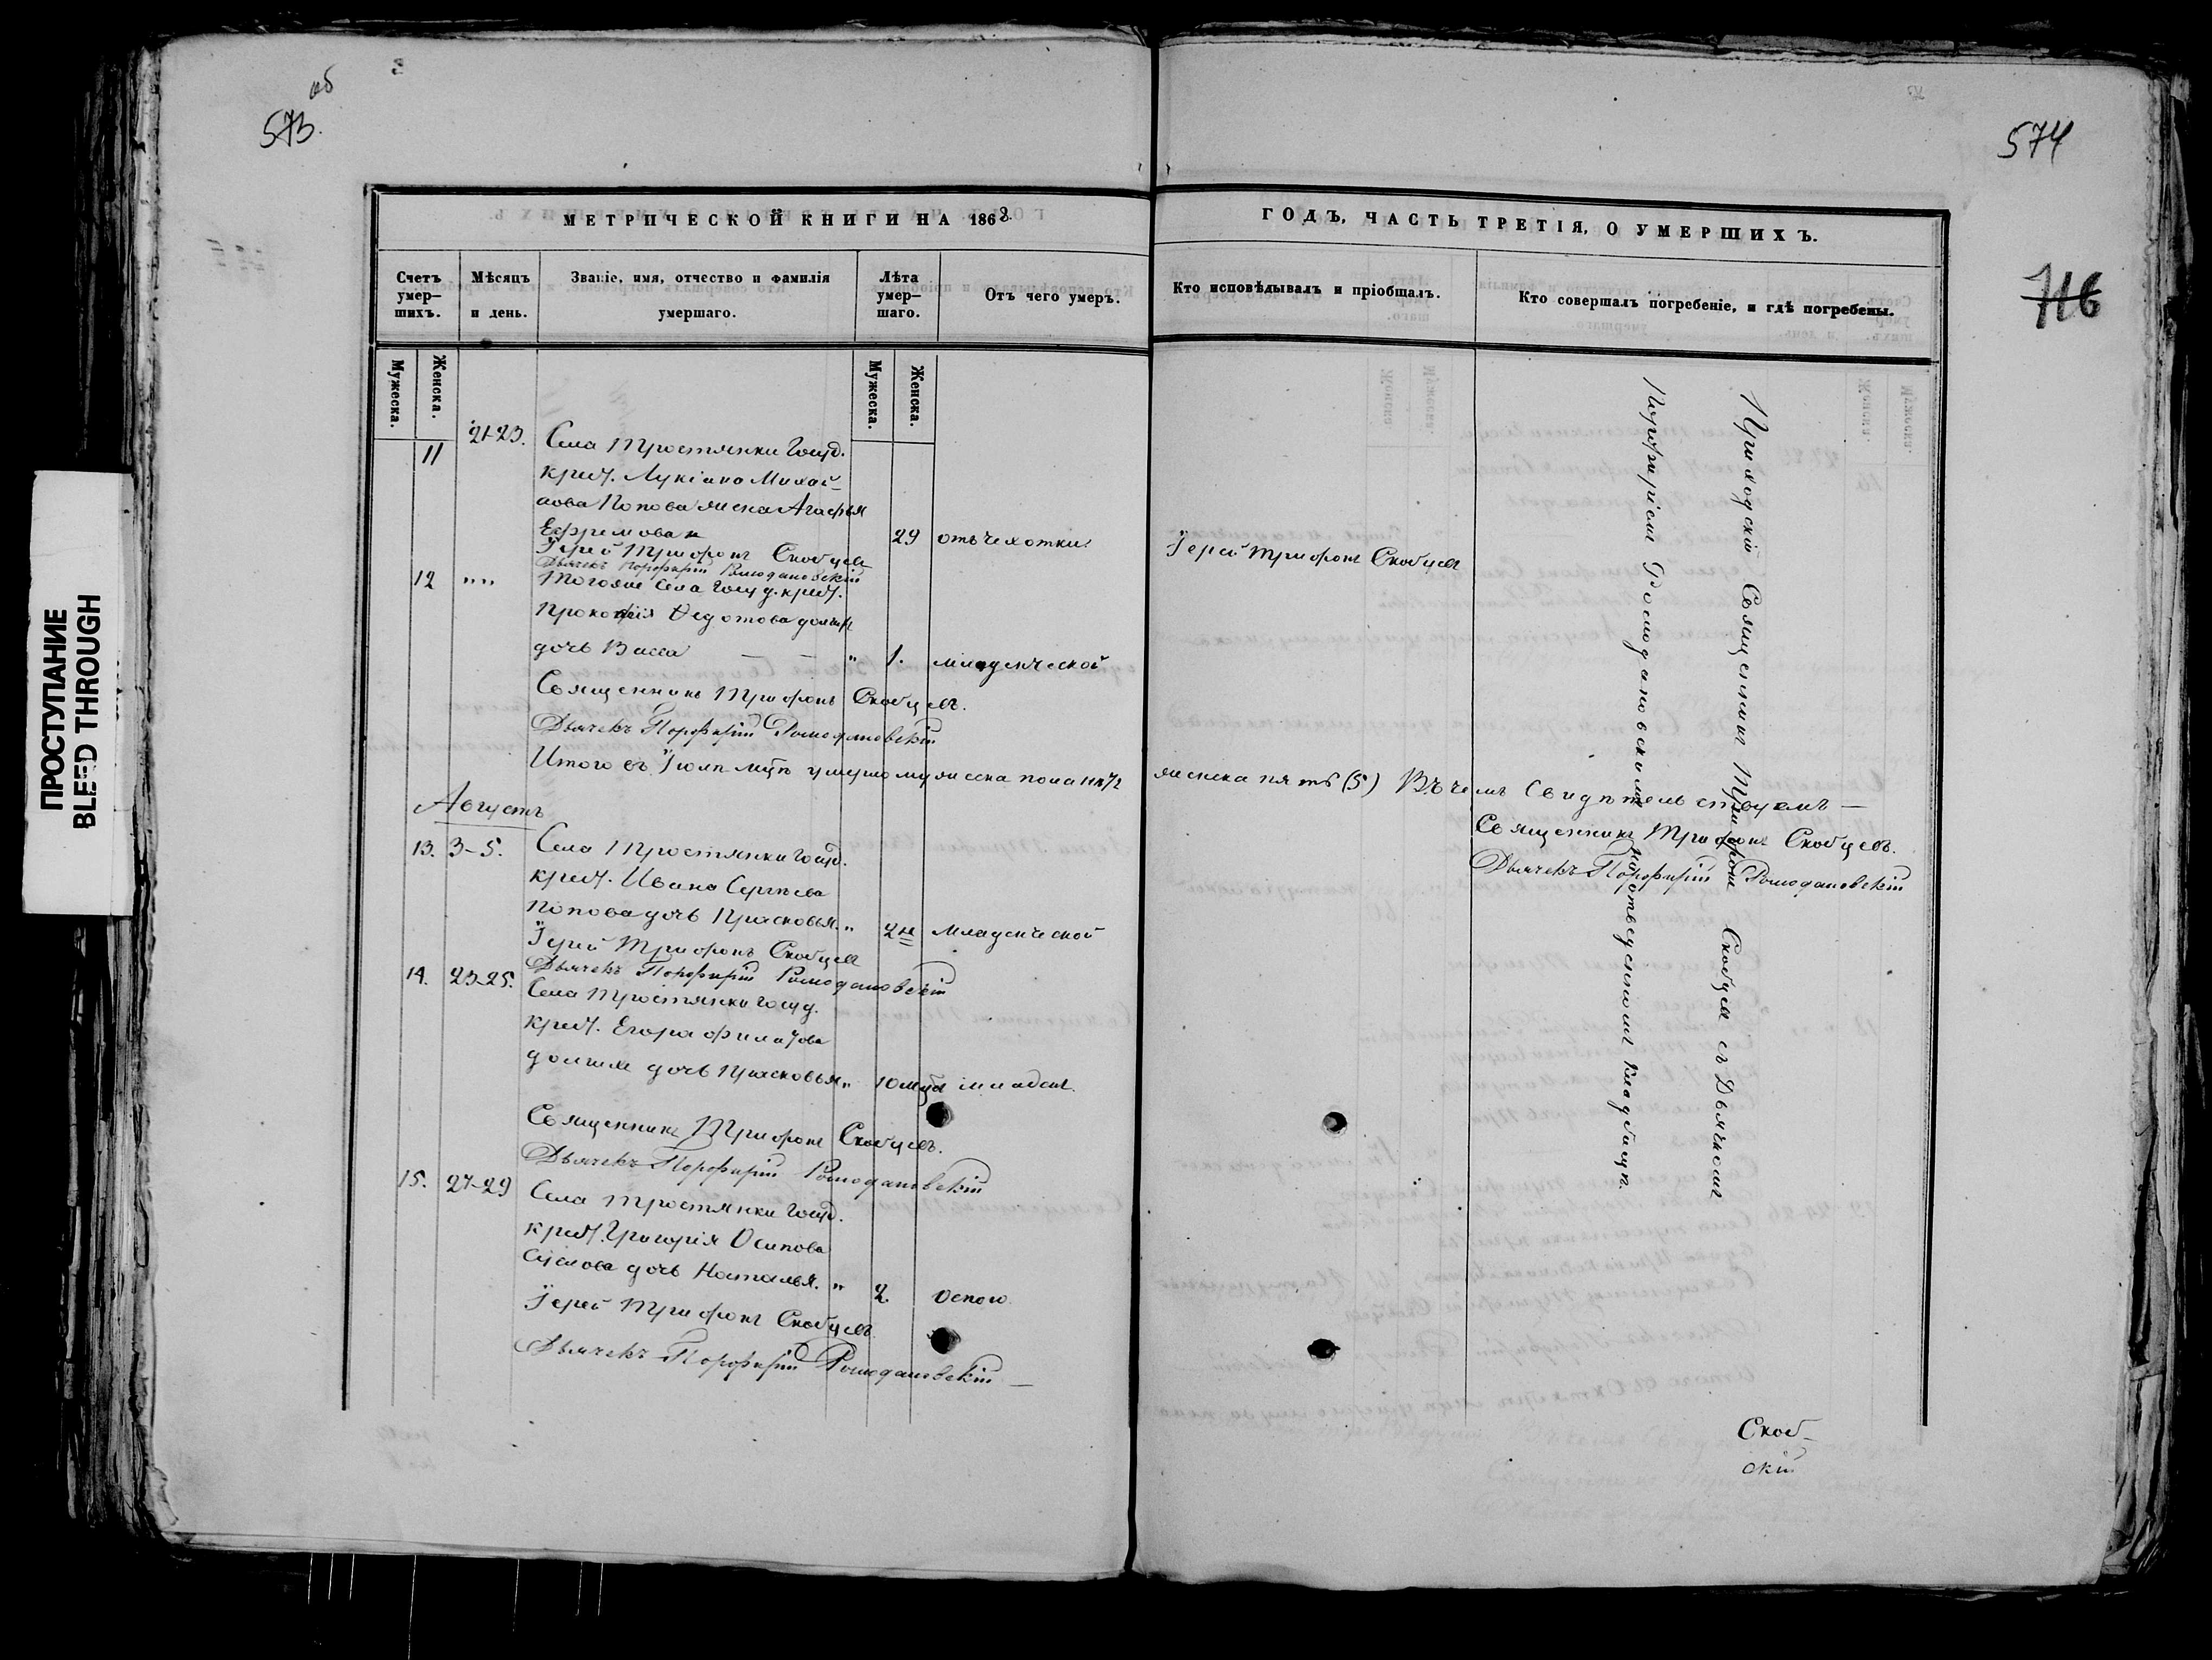 573 об
574
716
ПРОСТУПАНИЕ
BLEED THROUGH
МЕТРИЧЕСКОЙ КНИГИ НА 186
ГОДЪ, ЧАСТЬ ТРЕТІЯ, О УМЕРШИХЪ.
Счетъ умер–шихъ.
Мѣсяцъ и день.
Званіе, имя, отчество и фамилія умершаго.
Лѣта умер–шаго.
Отъ чего умеръ.
Кто исповѣдывалъ и пріобщалъ.
Кто совершалъ погребеніе, и гдѣ погребены.
Мужеска.
Женска.
Мужеска.
Женска.
11 21-23. Села Тростянки Госуд.
крест. Лукіана Михай–
лова Попова жена Агафья
Ефремова 29 отъ чехотки Іерей Трифонъ Скобцевъ
Іерей Трифонъ Скобцевъ
Дьячекъ Порфирій Ромодановскій
12 „„ Тогоже Села Госуд. крест.
Прокопія Ѳедотова
дочь Васса — — „ 1. младенческой
Священникъ Трифонъ Скобцевъ.
Дьячекъ Порфирій Ромодановскій
Итого въ Іюлѣ м-цѣ умершо женска пола
женска пять (5) Въ чемъ Свидѣтельствуемъ —
Священникъ Трифонъ Скобцевъ.
Дьячекъ Порфирій Ромодановскій
Августъ
13. 3–5. Села Тростянки Госуд.
крест. Ивана Сергѣева
Попова дочь Прасковья. „ 2 н младенческой
Іерей Трифонъ Скобцевъ
Дьячекъ Порфирій Ромодановскій
14. 23–25. Села Тростянки Госуд.
крест. Егора Филатова
дочь Прасковья „ 10 младен.
Священникъ Трифонъ Скобцевъ.
Дьячекъ Порфирій Ромодановскій
15. 27–29 Села Тростянки Госуд.
крест. Григорія Осипова
дочь Наталья. „ 2. Оспою.
Іерей Трифонъ Скобцевъ
Дьячекъ Порфирій Ромодановскій —
Приходскій Священникъ Трифонъ Скобцевъ съ Дьячкомъ
Порфиріемъ Ромодановскимъ на отведенномъ кладбищѣ.
Скоб–
скій